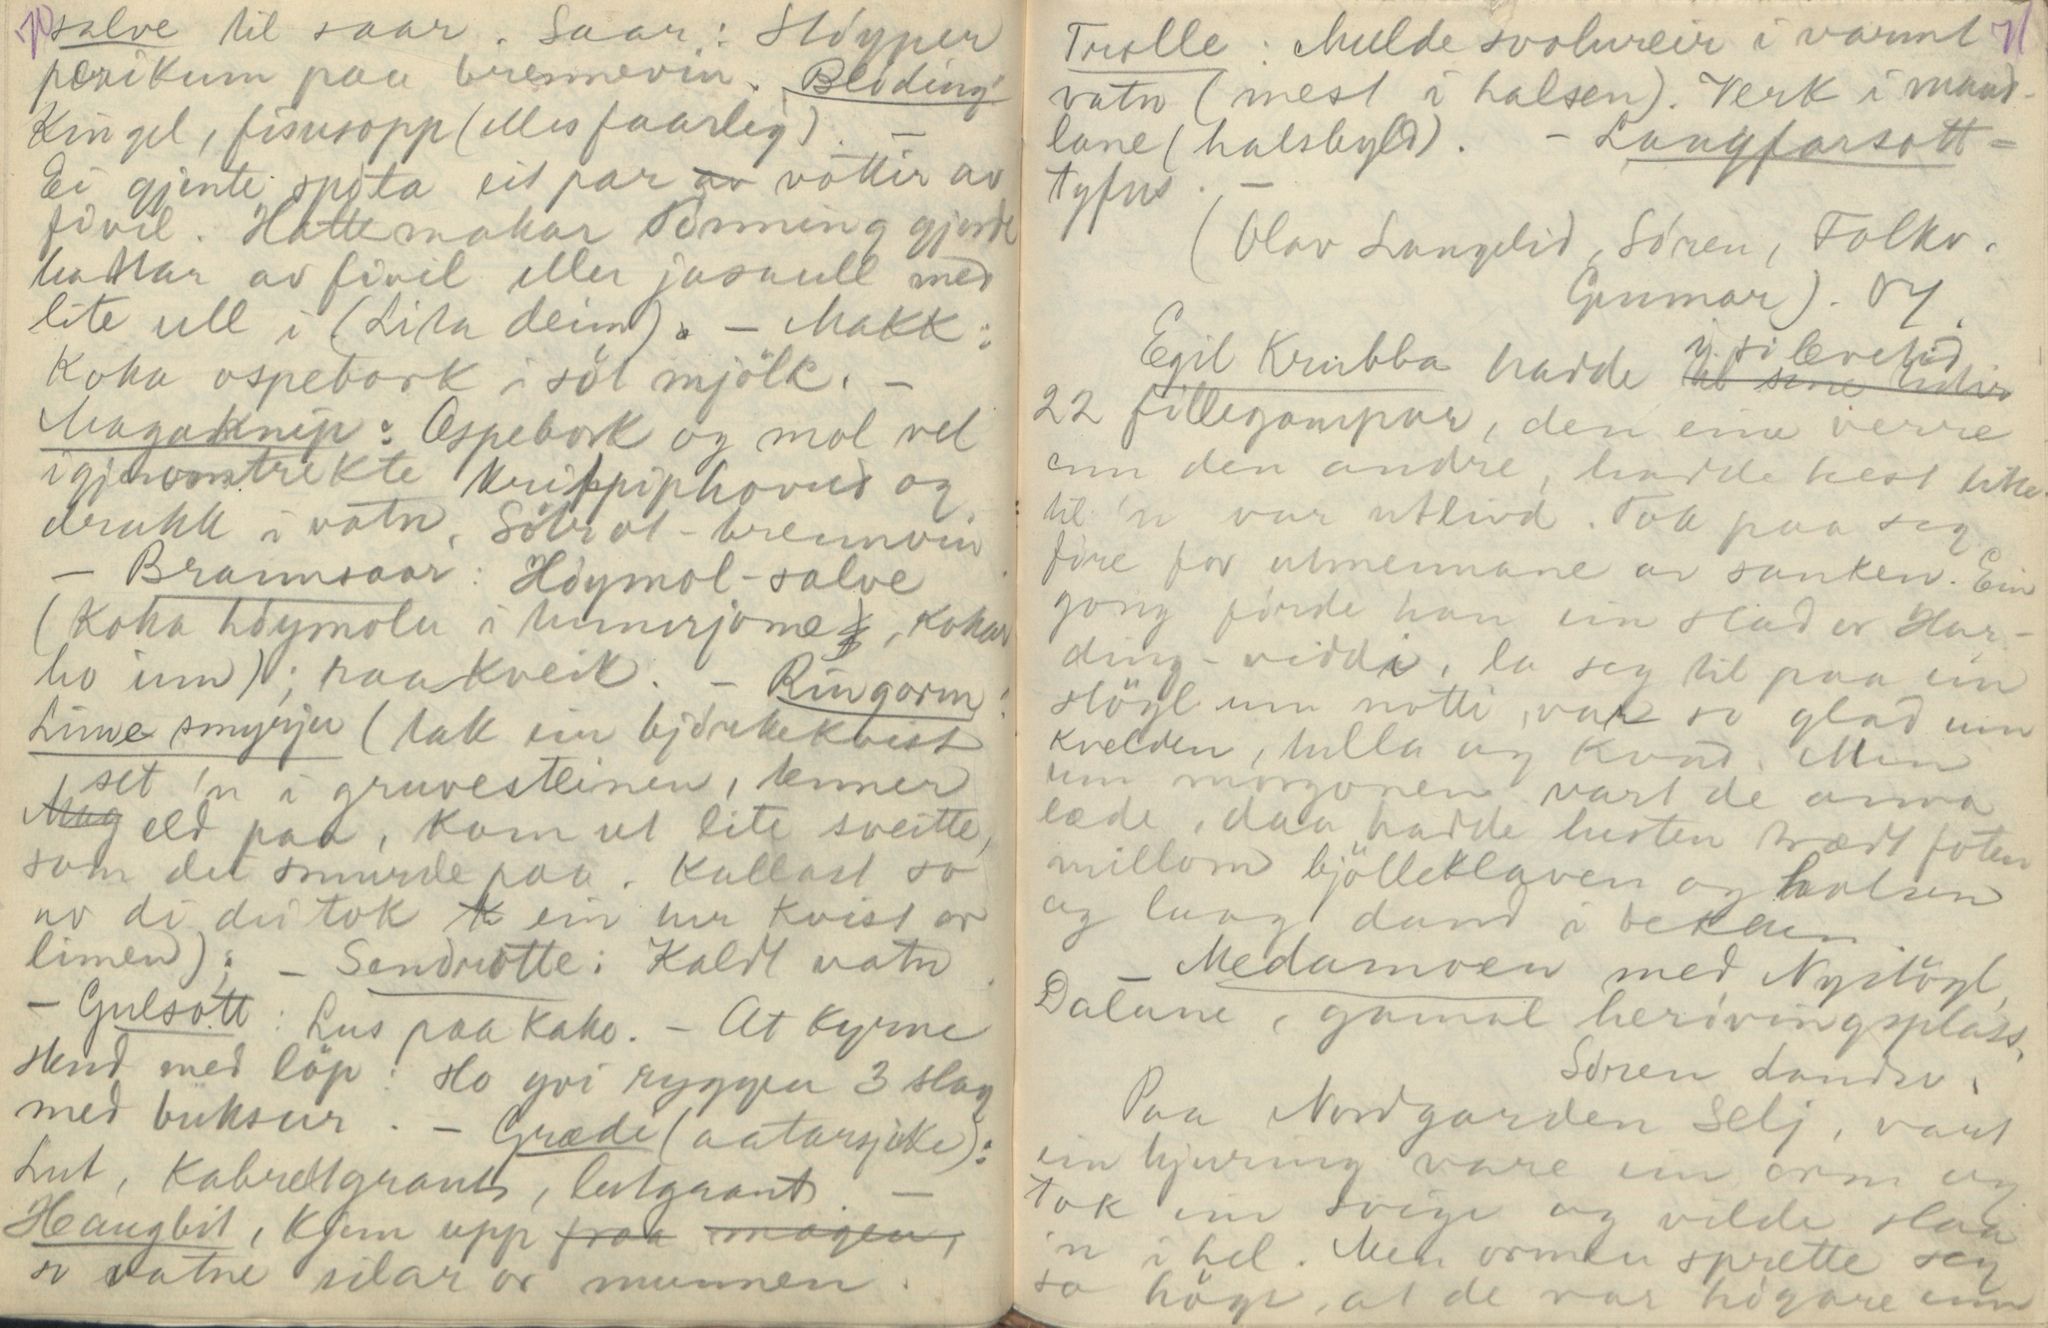 70
salve til saar. Saar: Støyper
perikum paa brennevin. Bløding:
Kingel, fisusopp (elles faarleg). –
Ei gjente spøta eit par av vøttir av
fivil. Hattemakar Tønning gjorde
hattar av fivil eller jasaull med
lite ull i (Lita deim). – Makk:
Koka ospebork i søt mjölk. –
Magaknip: Ospebork og mol vel
igjenomtrekte krittpiphovud og
drukk i vatn. Sötrot-brennevin
– Brannsaar: Höymol-salve
(Koka höymolu i tunnrjome, kokar
ho inn); raakveik. – Ringorm:
Lime smyrju (tak ein bjørkekvist
set 'n i gruvesteinen, tenner
eld paa, kom ut lite sveitte,
som dei smurde paa. Kallast so
av di dei tok ein turr kvist av
limen); – Sendrotte: Kaldt vatn
– Gulsott: Lus paa kake. – At kyrne
stend med löp: slo yvi ryggen 3 slag
med buksur. – Græde (aatarsjuke):
Lut, Kabreltgraut, lutgraut. –
Haugbit, kjem upp fraa magen,
so vatne silar or munnen.
71
Trolle: Mulde svolureir i varmt
vatn (mest i halsen). Verk i mand-
lane (halsbyld). – Langfarsott =
tyfus. –
(Olav Langelid, Søren, Folkv.
Gunnar). Oy.
Egil Krubba hadde i si levetid
til sine tidir
22 fillegampar, den eine verre
enn den andre, hadde hest
til 'n var utlivd. Tok paa seg
føre for utmennane av sanken. Ein
gong førde han ein stad or Har-
ding-viddi, la seg til paa ein
stögl um notti, var so glad um
kvelden, tulla og kvad. Men
um morgonen vart de anna
læde, daa hadde hesten trædt foten
millom bjölleklaven og halsen
og laag daud i bekken.
– Medamoen med Nystögl,
Datune, gamal herivingsplass.
Søren Landsv.
Paa Nordgarden Selj, vart
ein hjuring vare ein orm og
tok ein svige og vilde slaa
'n i hel. Men ormen sprette seg
so högt, at de var högare enn